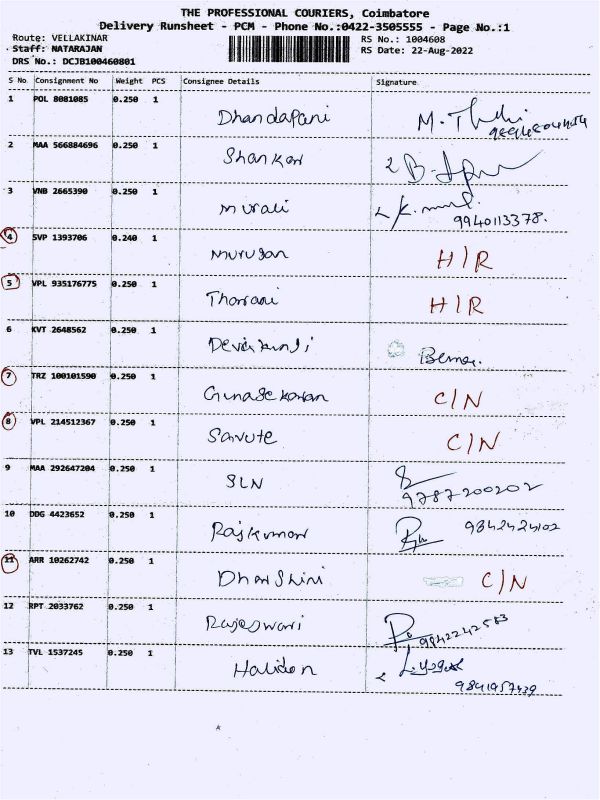 THE PROFESSIONAL COURIERS, Coimbatore
Delivery Runsheet - PCM - Phone No.:0422-3505555 - Page No.:1
Route: VELLAKINAR RS No.: 1004608
Staff: NATARAJAN RS Date: 22-Aug-2022
DRS No.: DCJB100460801
S No. Consignment No Weight PCS Consignee Details Signature
1 POL 8081085 0.250 1 Dhandapani
2 MAA 566884696 0.250 1 Shankar
3 VNB 2665390 0.250 1 Murali 9940113378.
4 SVP 1393706 0.240 1 Murugan H/R
5 VPL 935176775 0.250 1 H/R
6 KVT 2648562 0.250 1
7 TRZ 100101590 0.250 1 Gunasekaran C/N
8 VPL 214512367 0.250 1 Savute C/N
9 MAA 292647204 0.250 1 SLN 9787200202
10 DDG 4423652 0.250 1 Rajkumar 9842424102
11 ARR 10262742 0.250 1 Dharshini C/N
12 RPT 2033762 0.250 1 Rajeswari 9942242583
13 TVL 1537245 0.250 1